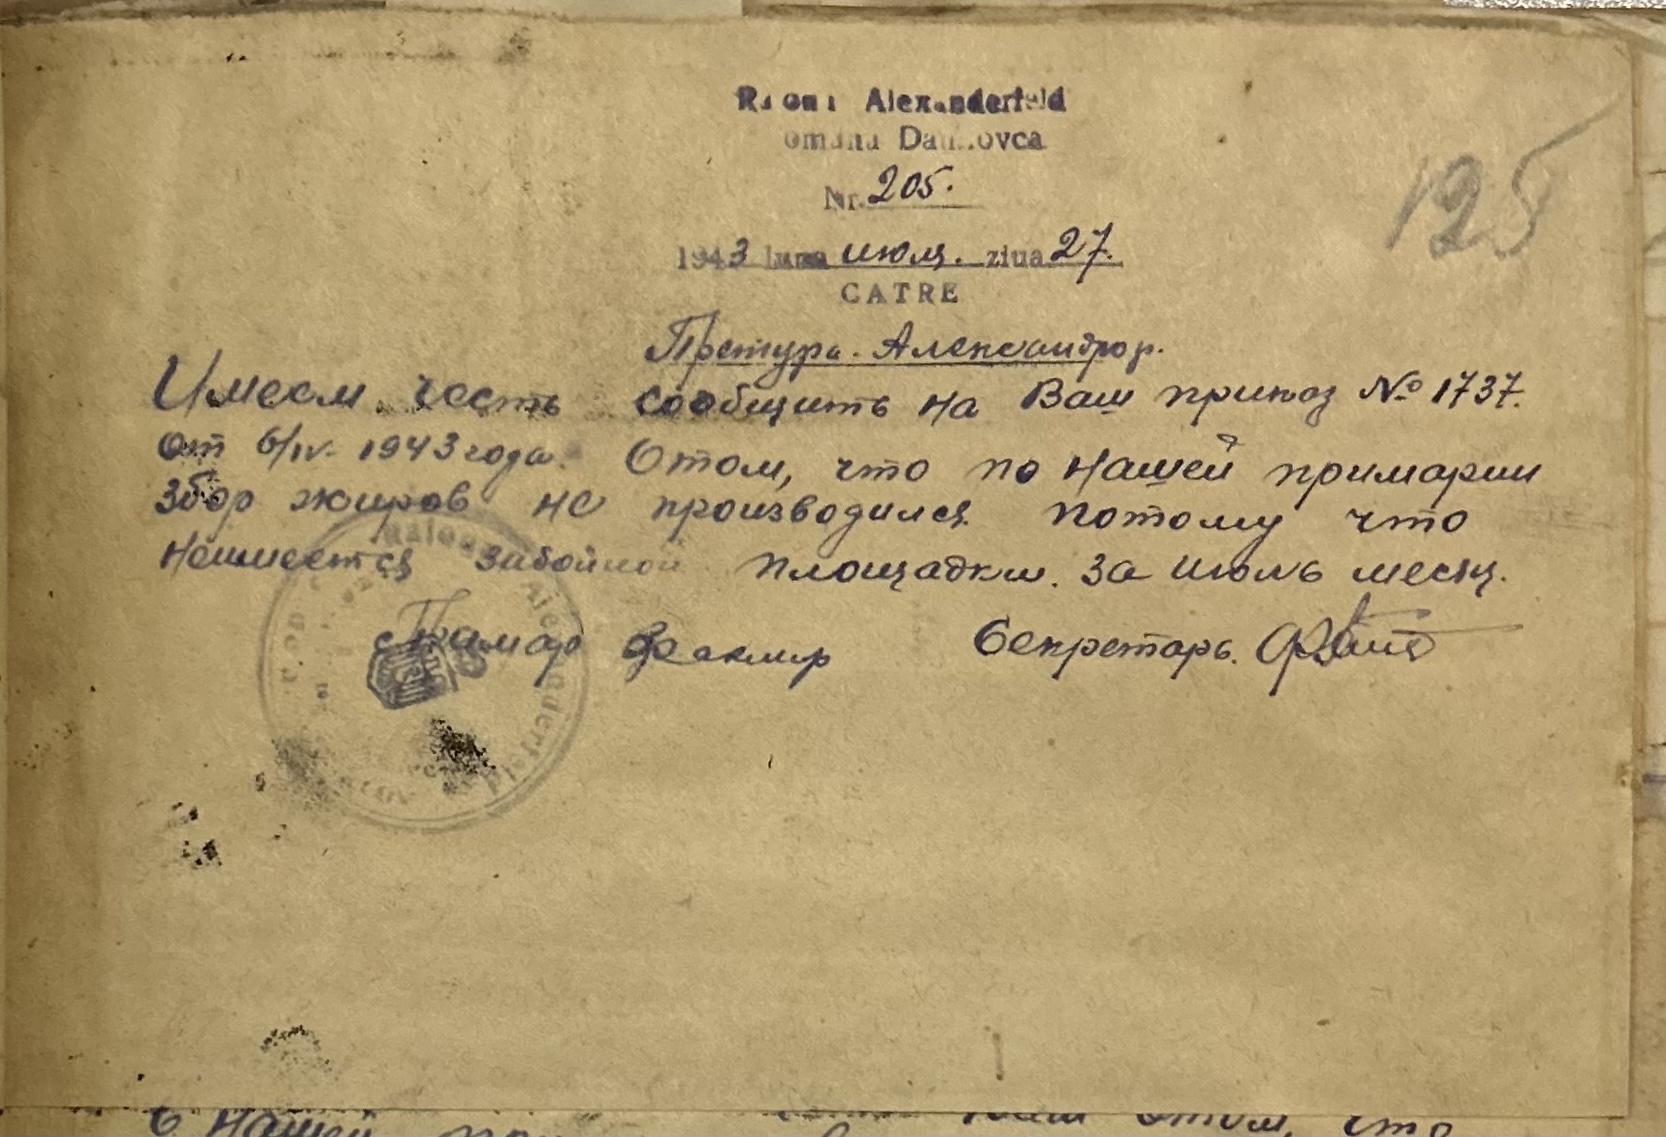 Alexanderfeld
Nr. 205.
125
1943 luna июля. ziua 27.
CATRE
Претура. Александрфр.
Имеем честь сообщить на Ваш приказ № 1737.
От 6/IV- 1943 года. Отом, что по нашей примарии
Збор жиров не производился потому что
неимеется забойной площадки. за июль месяц.
Примар Секретарь.
Raion Alexanderfeld